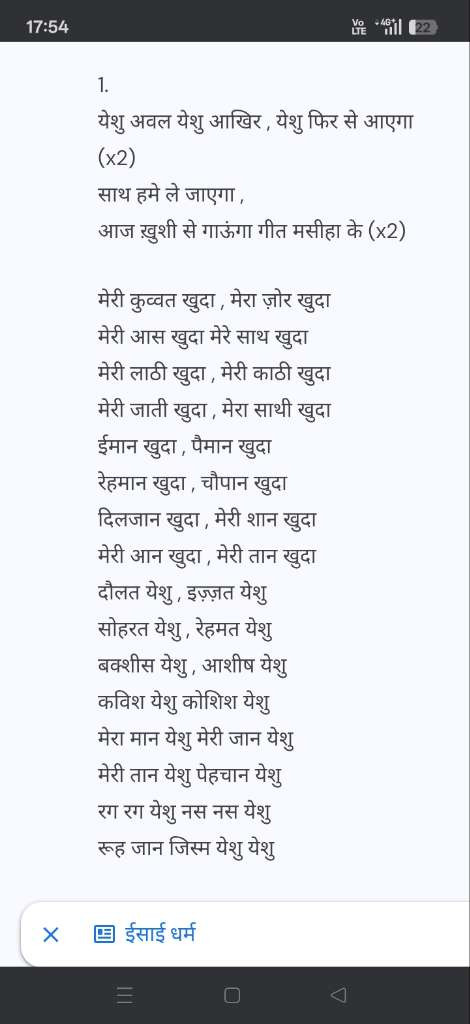 17:54
Vo LTE 4G+ 22
1.
येशु अवल येशु आखिर , येशु फिर से आएगा
(x2)
साथ हमे ले जाएगा ,
आज ख़ुशी से गाऊंगा गीत मसीहा के (x2)
मेरी कुव्वत खुदा , मेरा ज़ोर खुदा
मेरी आस खुदा मेरे साथ खुदा
मेरी लाठी खुदा , मेरी काठी खुदा
मेरी जाती खुदा , मेरा साथी खुदा
ईमान खुदा , पैमान खुदा
रेहमान खुदा , चौपान खुदा
दिलजान खुदा , मेरी शान खुदा
मेरी आन खुदा , मेरी तान खुदा
दौलत येशु , इज़्ज़त येशु
सोहरत येशु , रेहमत येशु
बक्शीस येशु , आशीष येशु
कविश येशु कोशिश येशु
मेरा मान येशु मेरी जान येशु
मेरी तान येशु पेहचान येशु
रग रग येशु नस नस येशु
रूह जान जिस्म येशु येशु
ईसाई धर्म